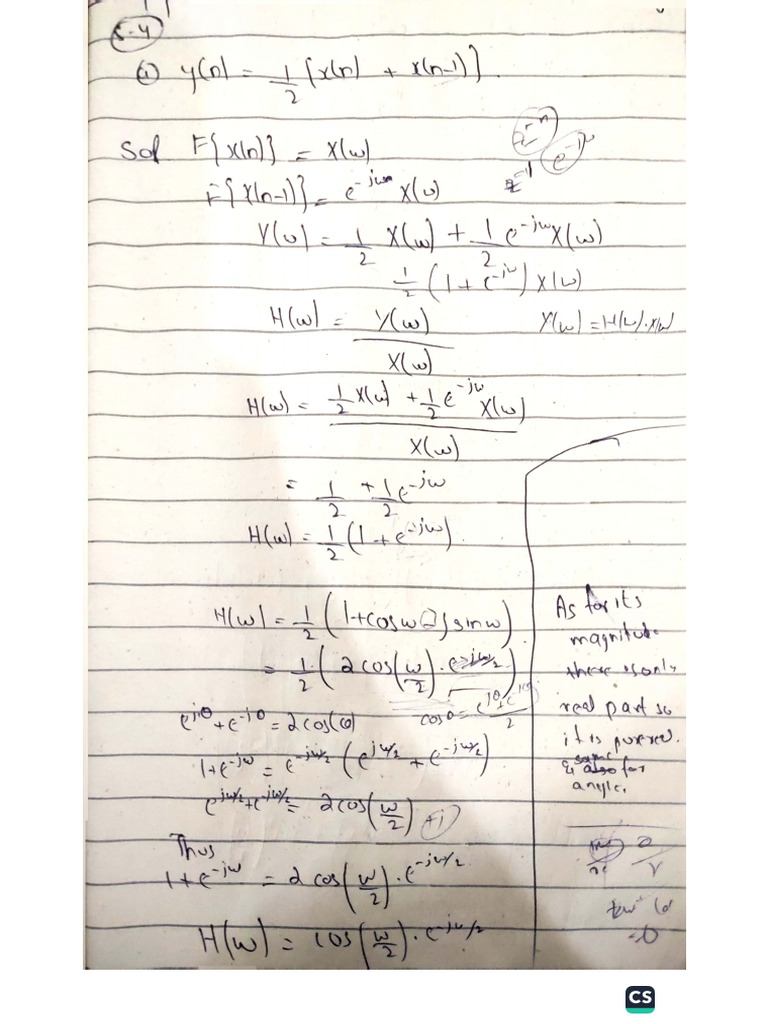 5-4
(a) y(n) = 1/2 [x(n) + x(n-1)].
Sol F{x(n)} = X(ω)
F{x(n-1)} = e^-jωn X(ω)
z^-n
z^-1 e^-jω
Y(ω) = 1/2 X(ω) + 1/2 e^-jω X(ω)
1/2 (1 + e^-jω) X(ω)
H(ω) = Y(ω) / X(ω)
Y(ω) = H(ω).X(ω)
H(ω) = (1/2 X(ω) + 1/2 e^-jω X(ω)) / X(ω)
= 1/2 + 1/2 e^-jω
H(ω) = 1/2 (1 + e^-jω).
H(ω) = 1/2 (1 + cosω - j sinω)
= 1/2 . (2 cos(ω/2) . e^-jω/2)
e^jθ + e^-jθ = 2cos(θ)
cosθ = (e^jθ + e^-jθ) / 2
1 + e^-jω = e^-jω/2 (e^jω/2 + e^-jω/2)
e^jω/2 + e^-jω/2 = 2cos(ω/2)
Thus
1 + e^-jω = 2 cos(ω/2) . e^-jω/2
H(ω) = cos(ω/2) . e^-jω/2
As for its
magnitude
there is only
real part so
it is
& same for
angle.
tan^-1 (0
=0
CS